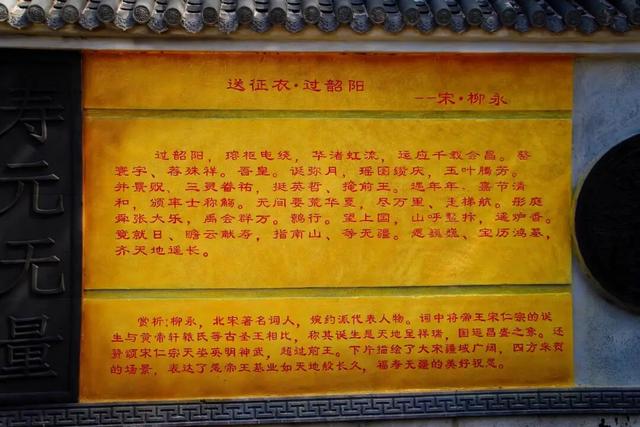 寿元无量
送征衣·过韶阳
--宋·柳永
过韶阳，璿枢电绕，华渚虹流，运应千载会昌。罄
寰宇、荐殊祥。吾皇。诞弥月，瑶图缵庆，玉叶腾芳。
并景贶、三灵眷祐，挺英哲、掩前王。遇年年、嘉节清
和，颁率土称觞。无间要荒华夏，尽万里、走梯航。彤庭
舜张大乐，禹会群万。鹓行。望上国，山呼鳌抃，遥炉香。
竟就日、瞻云献寿，指南山、等无疆。愿巍巍、宝历鸿基，
齐天地遥长。
赏析：柳永，北宋著名词人，婉约派代表人物。词中将帝王宋仁宗的诞
生与黄帝轩辕氏等古圣王相比，称其诞生是天地呈祥瑞，国运昌盛之象。还
赞颂宋仁宗天姿英明神武，超过前王。下片描绘了大宋疆域广阔，四方来贺
的场景，表达了是帝王基业如天地般长久，福寿无疆的美好祝愿。